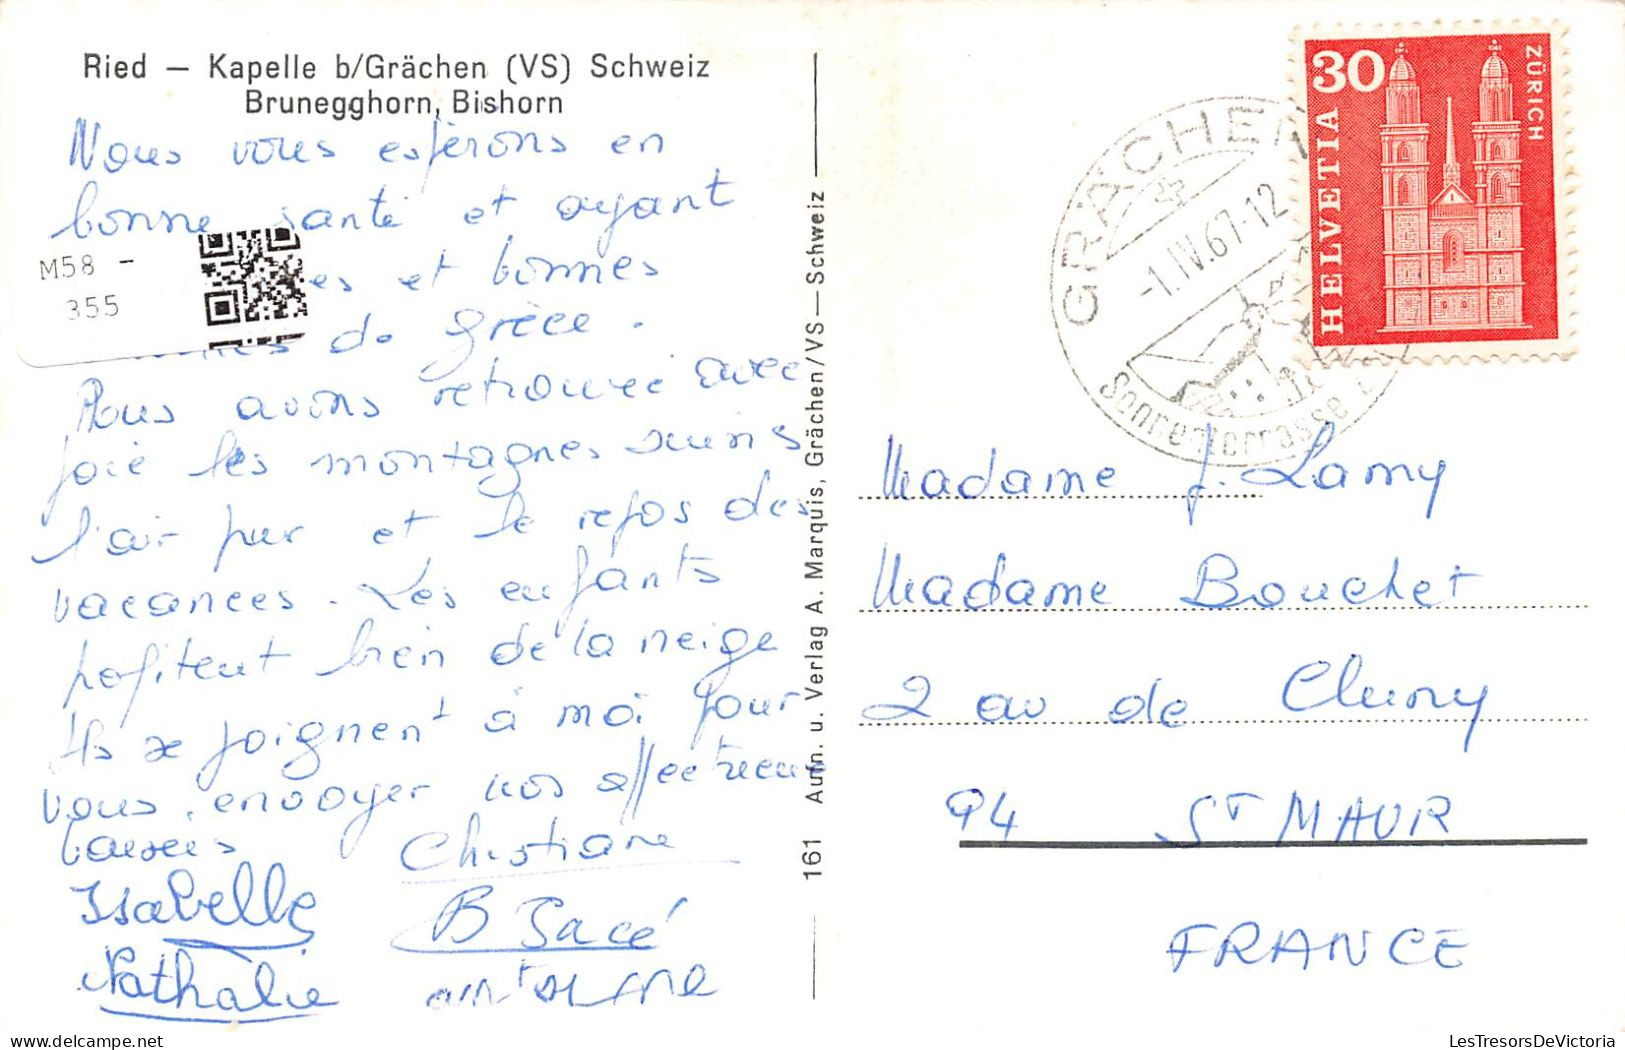 Ried — Kapelle b/Grächen (VS) Schweiz
Brunegghorn, Bishorn
Nous vous espérons en
bonne santé et ayant
es et bonnes
de grèce.
Nous avons retrouvé avec
joie les montagnes suiss
l'air pur et le repos des
vacances. Les enfants
profitent bien de la neige
Ils se joignent à moi pour
vous envoyer nos affectueux
baisers
Christiane
Isabelle
B Sacé
Nathalie
M58 -
355
161 Aufn. u. Verlag A. Marquis, Grächen/VS — Schweiz
GRÄCHEN
-1.IV.67-12
Sonnenterrasse
30
HELVETIA
ZÜRICH
Madame J. Lamy
Madame Bouchet
2 av de Cluny
94 ST MAUR
FRANCE
LesTresorsDeVictoria
delcampe.net